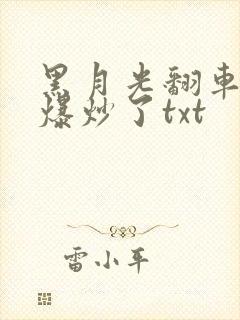 黑月光翻車
爆炒了txt
雷小平